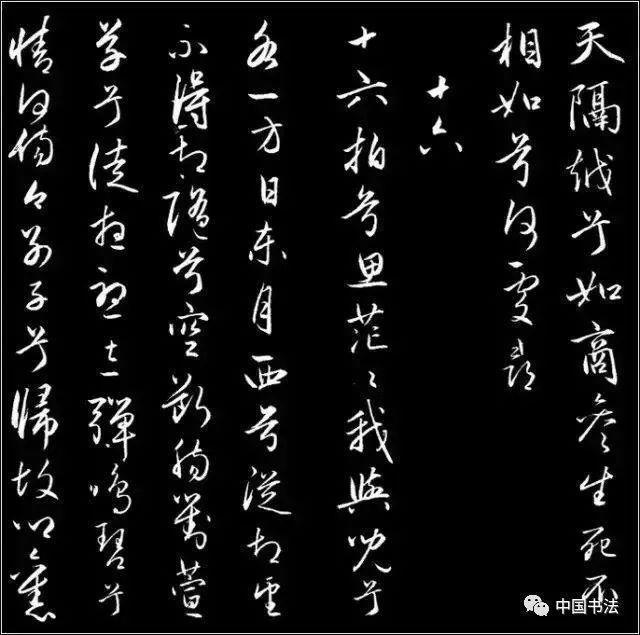 天隔越兮如商參生死不
相知兮何處尋
十六
十六拍兮思茫〻我與兒兮
各一方日東月西兮徒相望
不得相隨兮空斷腸對萱
草兮徒想憂忘彈鳴琴兮
情何傷今別子兮歸故鄉舊
中国书法